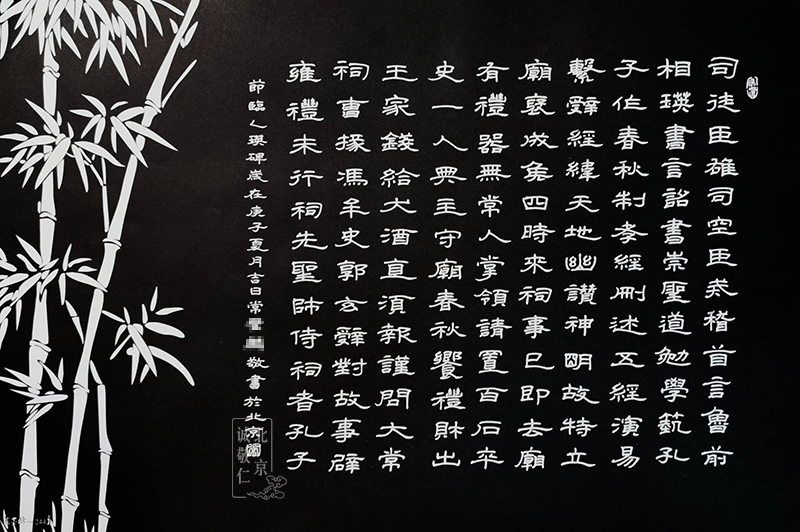 司徒臣雄司空臣戒稽首言魯前
相瑛書言詔書崇聖道勉學藝孔
子作春秋制孝經刪述五經演易
繫辭經緯天地幽讚神明故特立
廟褒成侯四時來祠事已即去廟
有禮器無常人掌領請置百石卒
史一人典主守廟春秋饗禮財出
王家錢給犬酒直須報謹問大常
祠書掾馮牟史郭玄辭對故事辟
雍禮未行祠先聖師侍祠者孔子
節臨乙瑛碑歲在庚子夏月吉日常 敬書於北京
北京
诚敬仁